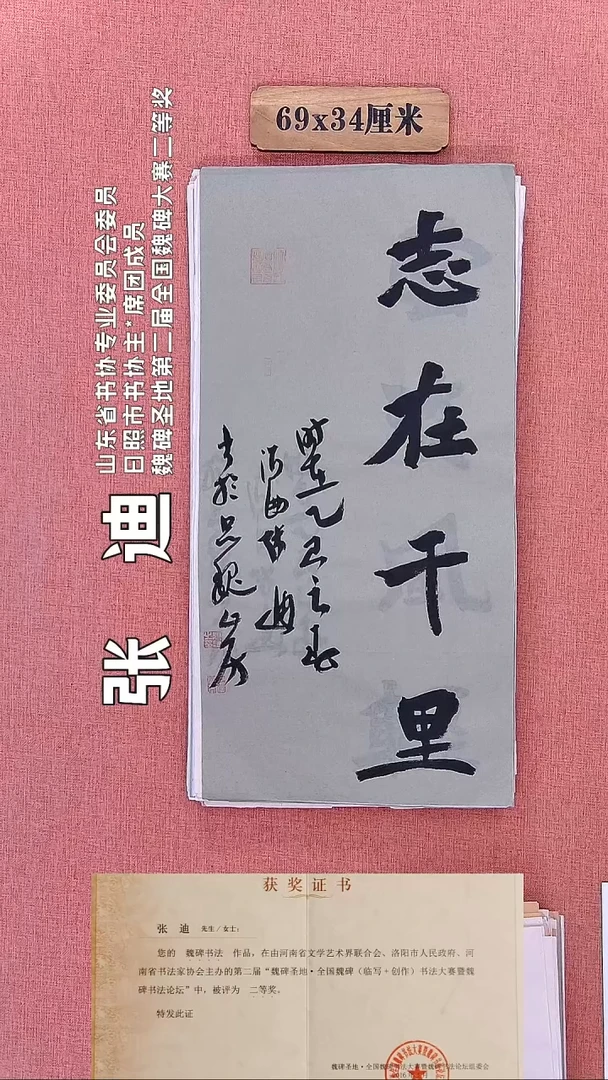 69x34厘米
山东省书协专业委员会委员
日照市书协主*席团成员
魏碑圣地第二届全国魏碑大赛二等奖
张 迪
志在千里
时在乙巳之春
书于思魏山房
获奖证书
张 迪 先生/女士：
您的 魏碑书法 作品，在由河南省文学艺术界联合会、洛阳市人民政府、河
南省书法家协会主办的第二届“魏碑圣地·全国魏碑（临写+创作）书法大赛暨魏
碑书法论坛”中，被评为 二等奖。
特发此证
魏碑圣地·全国魏碑书法大赛暨魏碑书法论坛组委会